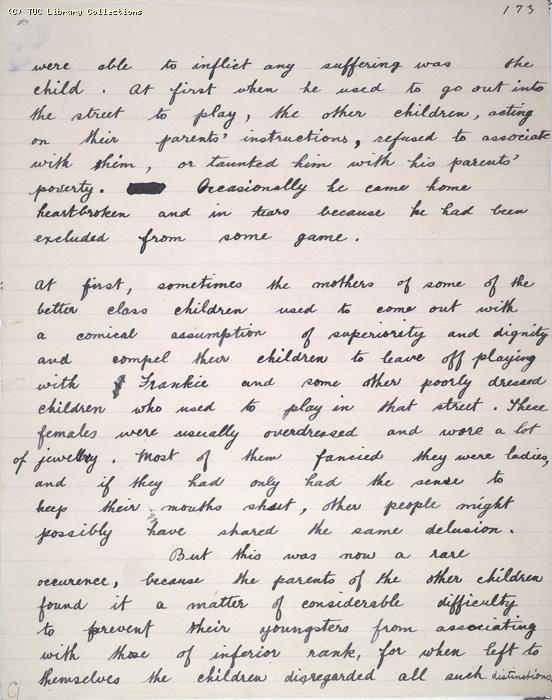 (C) TUC Library Collections
173
were able to inflict any suffering was the
child. At first when he used to go out into
the street to play, the other children, acting
on their parents' instructions, refused to associate
with him, or taunted him with his parents'
poverty. Occasionally he came home
heartbroken and in tears because he had been
excluded from some game.
At first, sometimes the mothers of some of the
better class children used to come out with
a comical assumption of superiority and dignity
and compel their children to leave off playing
with Frankie and some other poorly dressed
children who used to play in that street. These
females were usually overdressed and wore a lot
of jewellry. Most of them fancied they were ladies,
and if they had only had the sense to
keep their mouths shut, other people might
possibly have shared the same delusion.
But this was now a rare
occurence, because the parents of the other children
found it a matter of considerable difficulty
to prevent their youngsters from associating
with those of inferior rank, for when left to
themselves the children disregarded all such distinctions.